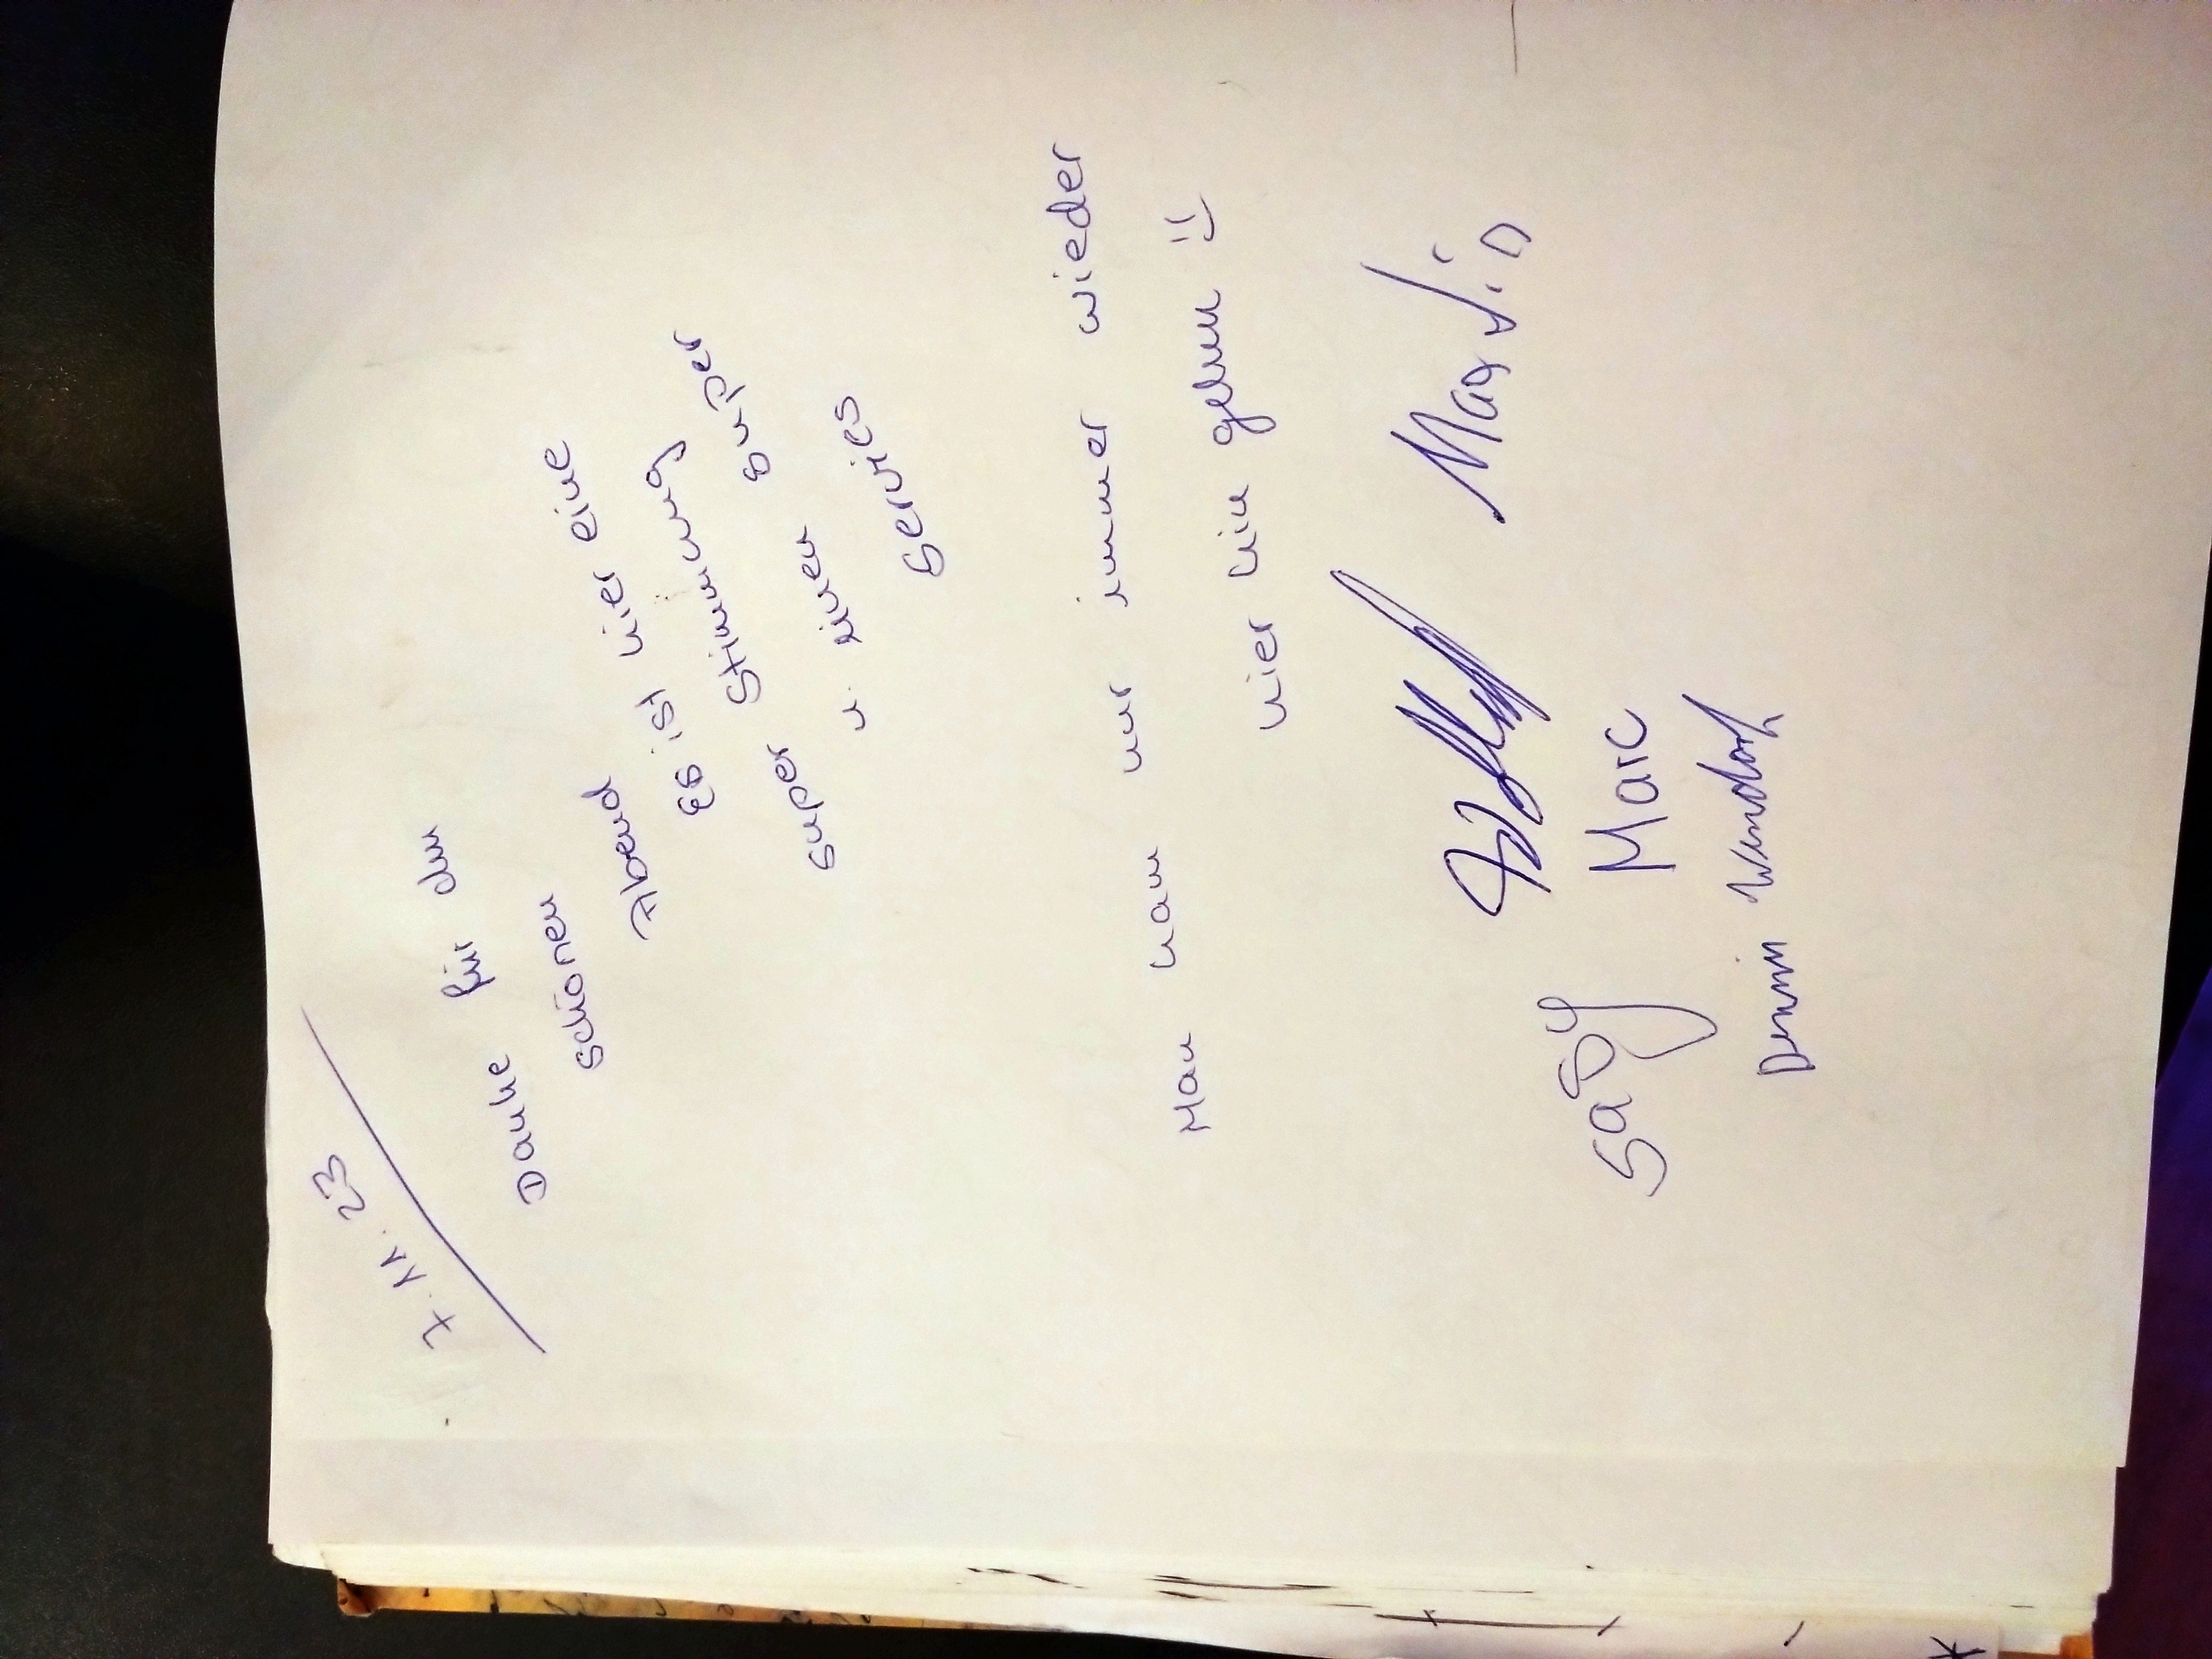 7.11.23
Danke für den
schönen
Abend
Es ist hier eine
super Stimmung
u. super
Servies
Man kan nur immer wieder
hier hin gehen :)
Martin
Saby Marc
Dennis Wendorf